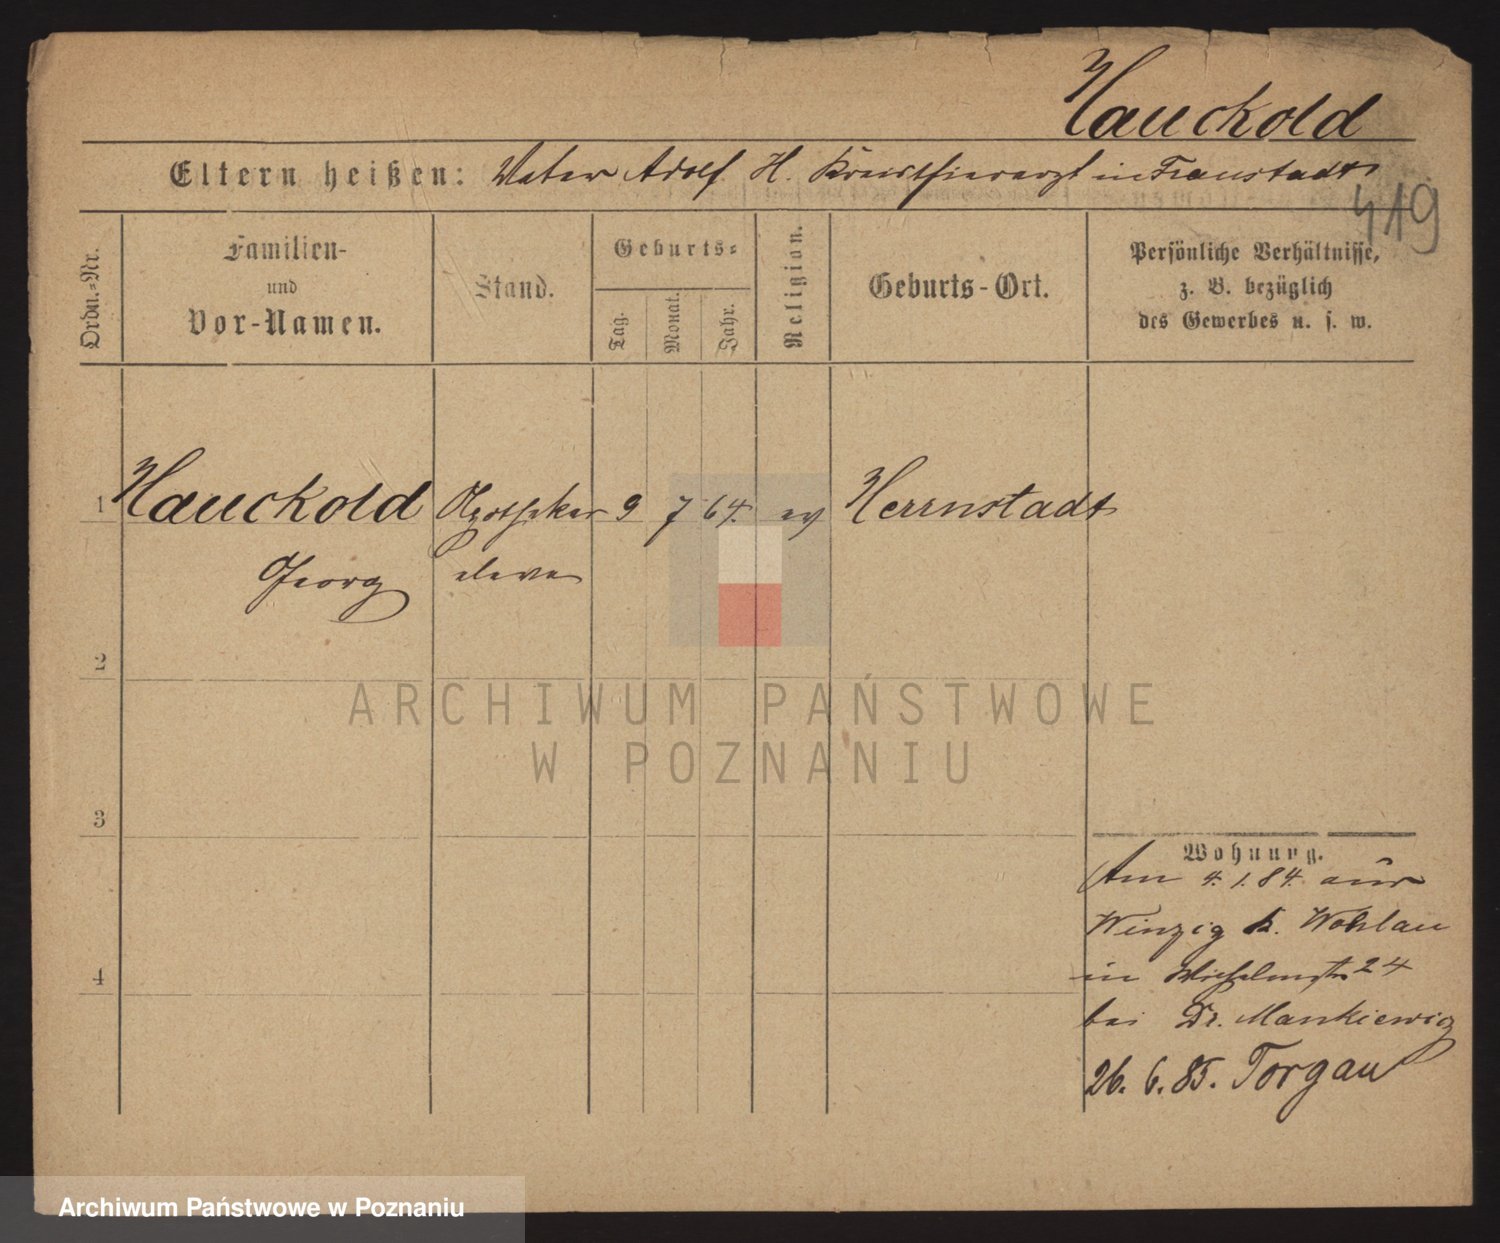 Hauckold
Eltern heißen: Vater Adolf H. Kreisthierarzt in Fraustadt
419
Ordn.-Nr.
Familien-
und
Vor-Namen.
Stand.
Geburts-
Tag.
Monat.
Jahr.
Religion.
Geburts-Ort.
Persönliche Verhältnisse,
z. B. bezüglich
des Gewerbes u. s. w.
1 Hauckold Apotheker 9 7 64. ev Herrnstadt
Georg eleve
2
ARCHIWUM PAŃSTWOWE
W POZNANIU
3
Wohnung.
Am 4.1.84. aus
Winzig K. Wohlau
in Wilhelmstr 24
bei Dr. Mankiewicz
26. 6. 85. Torgau
4
Archiwum Państwowe w Poznaniu